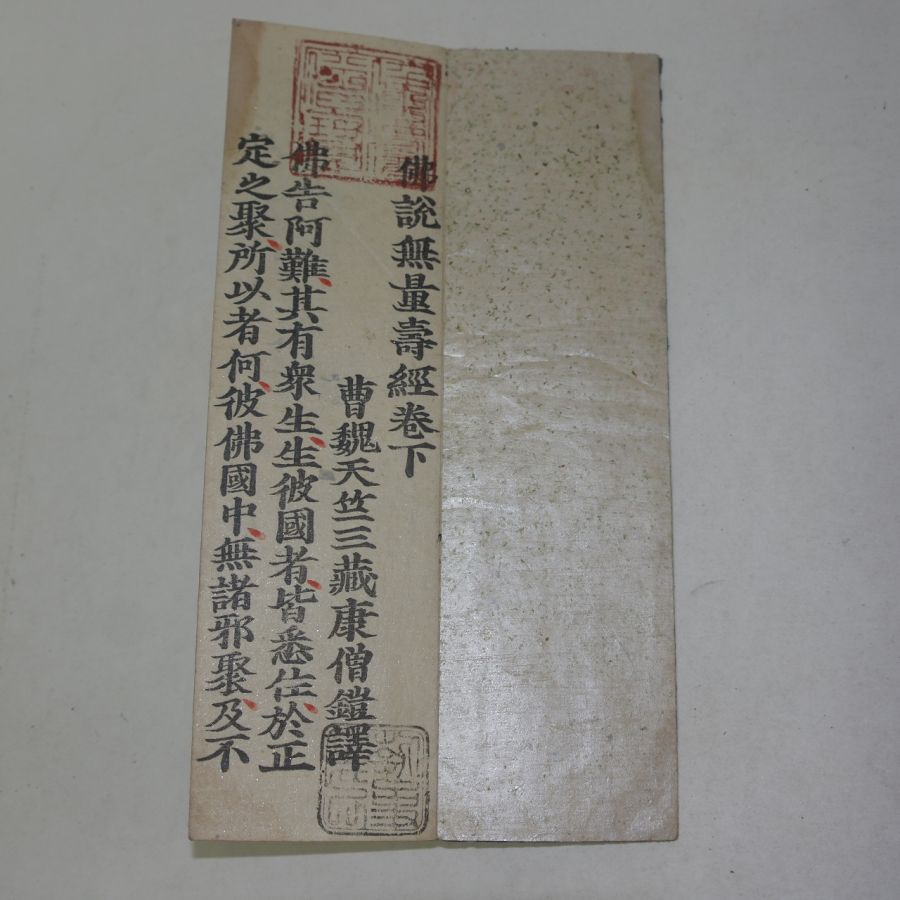 佛說無量壽經卷下
曹魏天竺三藏康僧鎧譯
佛告阿難、其有衆生、生彼國者、皆悉住、於正
定之聚、所以者何、彼佛國中、無諸邪聚、及不